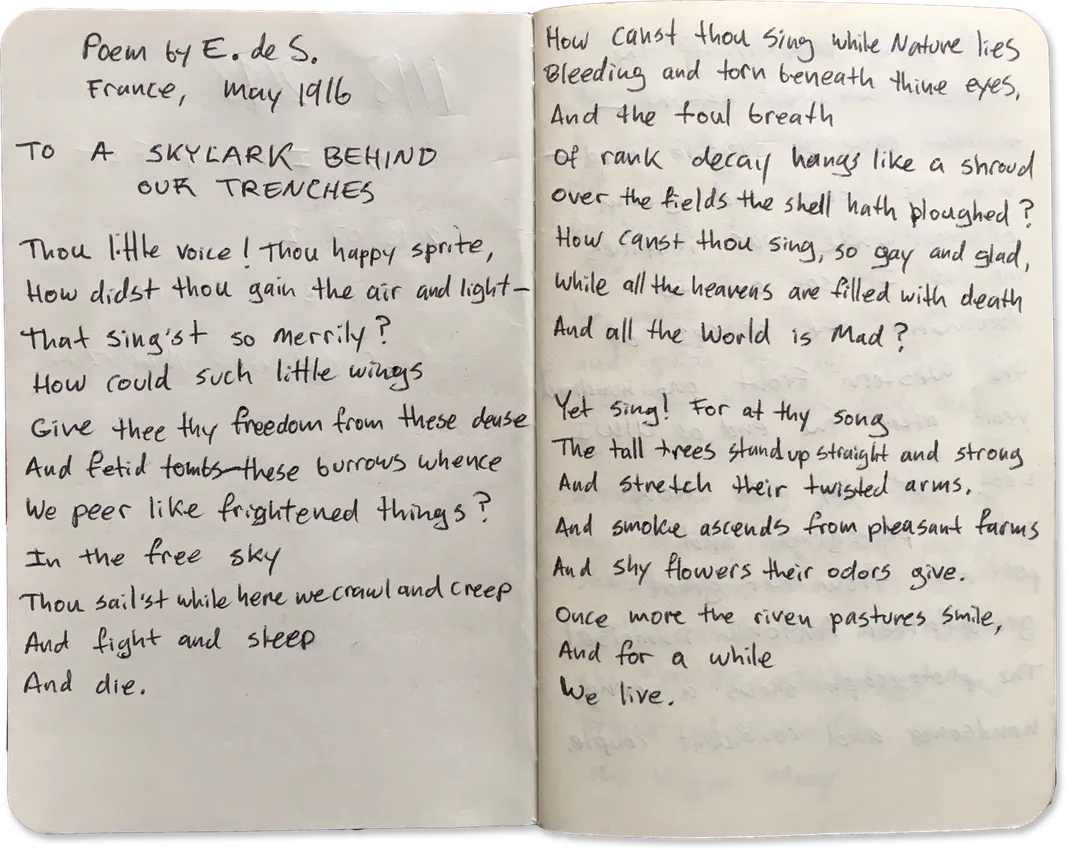 Poem by E. de S.
France, May 1916
TO A SKYLARK BEHIND
OUR TRENCHES
Thou little voice! Thou happy sprite,
How didst thou gain the air and light—
That sing'st so merrily?
How could such little wings
Give thee thy freedom from these dense
And fetid tombs—these burrows whence
We peer like frightened things?
In the free sky
Thou sail'st while here we crawl and creep
And fight and sleep
And die.
How canst thou sing while Nature lies
Bleeding and torn beneath thine eyes,
And the foul breath
Of rank decay hangs like a shroud
Over the fields the shell hath ploughed?
How canst thou sing, so gay and glad,
While all the heavens are filled with death
And all the World is Mad?
Yet sing! For at thy song
The tall trees stand up straight and strong
And stretch their twisted arms.
And smoke ascends from pleasant farms
And shy flowers their odors give.
Once more the riven pastures smile,
And for a while
We live.